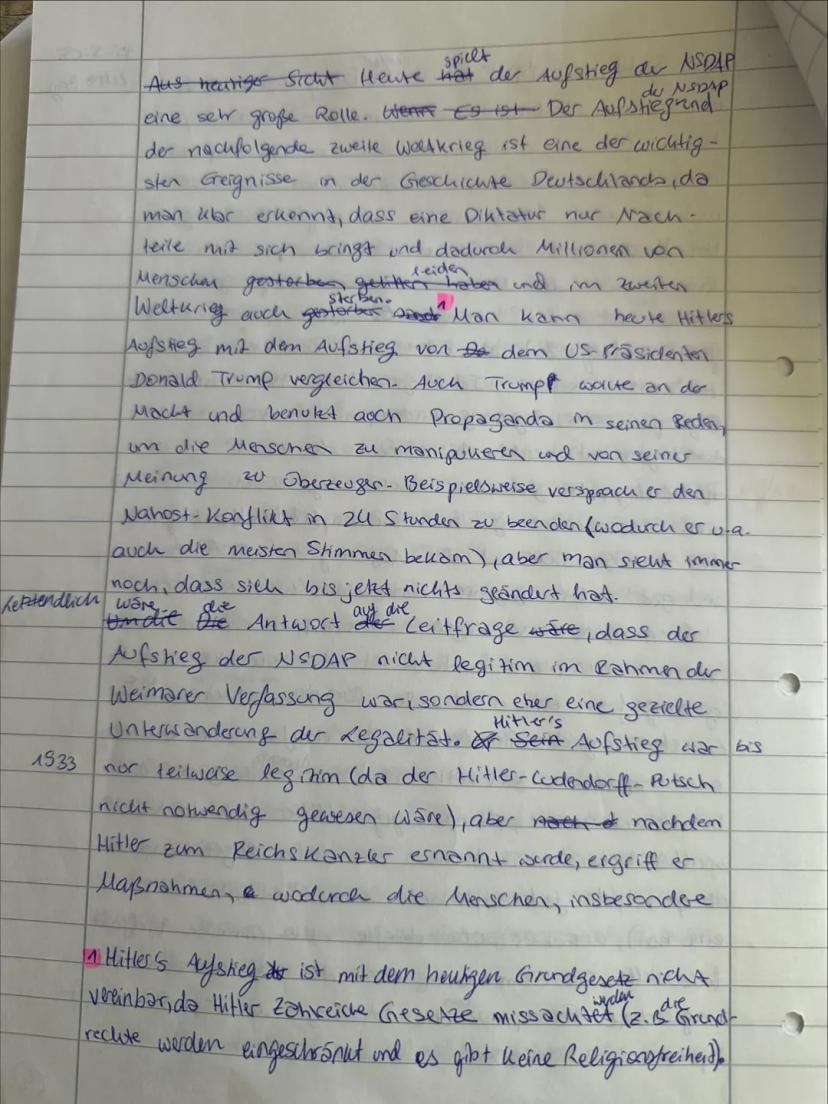 Aus heutiger Sicht Heute hat spielt der Aufstieg der NSDAP
eine sehr große Rolle. Wenn Es ist Der Aufstieg der NSDAP und
der nachfolgende zweite Weltkrieg ist eine der wichtig-
sten Ereignisse in der Geschichte Deutschlands, da
man klar erkennt, dass eine Diktatur nur Nach-
teile mit sich bringt und dadurch Millionen von
Menschen gestorben gelitten haben leiden und im zweiten
Weltkrieg auch gestorben sind sterben. 1 Man kann heute Hitlers
Aufstieg mit dem Aufstieg von dem US-Präsidenten
Donald Trump vergleichen. Auch Trump wollte an der
Macht und benutzt auch Propaganda in seinen Reden,
um die Menschen zu manipulieren und von seiner
Meinung zu überzeugen. Beispielsweise versprach er den
Nahost-Konflikt in 24 Stunden zu beenden (wodurch er u.a.
auch die meisten Stimmen bekam), aber man sieht immer
noch, dass sich bis jetzt nichts geändert hat.
Letztendlich Um die wäre Die die Antwort der auf die Leitfrage wäre, dass der
Aufstieg der NSDAP nicht legitim im Rahmen der
Weimarer Verfassung war, sondern eher eine gezielte
Unterwanderung der Legalität. Sein Hitler's Aufstieg war bis
1933 nur teilweise legitim (da der Hitler-Ludendorff-Putsch
nicht notwendig gewesen wäre), aber nach nachdem
Hitler zum Reichskanzler ernannt wurde, ergriff er
Maßnahmen, wodurch die Menschen, insbesondere
1 Hitler's Aufstieg ist mit dem heutigen Grundgesetz nicht
vereinbar, da Hitler zahlreiche Gesetze missachtet (z.B werden die Grund-
rechte werden eingeschränkt und es gibt keine Religionsfreiheit).